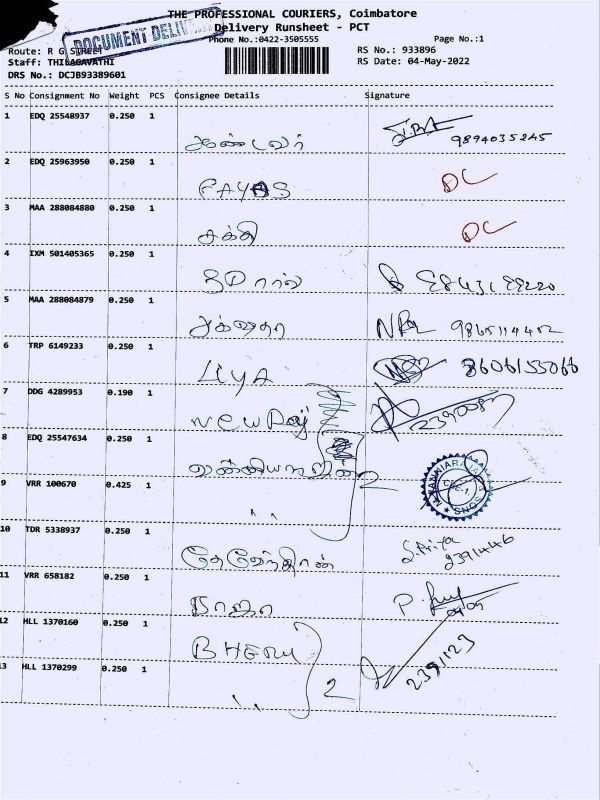 THE PROFESSIONAL COURIERS, Coimbatore
Delivery Runsheet - PCT
DOCUMENT DELIV
Phone No.:0422-3505555 Page No.:1
Route: R G STREET RS No.: 933896
Staff: THILAGAVATHI RS Date: 04-May-2022
DRS No.: DCJB93389601
S No Consignment No Weight PCS Consignee Details Signature
1 EDQ 25548937 0.250 1
9894035245
2 EDQ 25963950 0.250 1
FAYAS DC
3 MAA 288084880 0.250 1
சக்தி DC
4 IXM 501405365 0.250 1
5 MAA 288084879 0.250 1
6 TRP 6149233 0.250 1
LIYA 8606155066
7 DDG 4289953 0.190 1
8 EDQ 25547634 0.250 1
2
9 VRR 100670 0.425 1
" SONS
10 TDR 5338937 0.250 1
S.Priya
2391446
11 VRR 658182 0.250 1
ராஜா P
12 HLL 1370160 0.250 1
BHERU
2391123
13 HLL 1370299 0.250 1
" 2